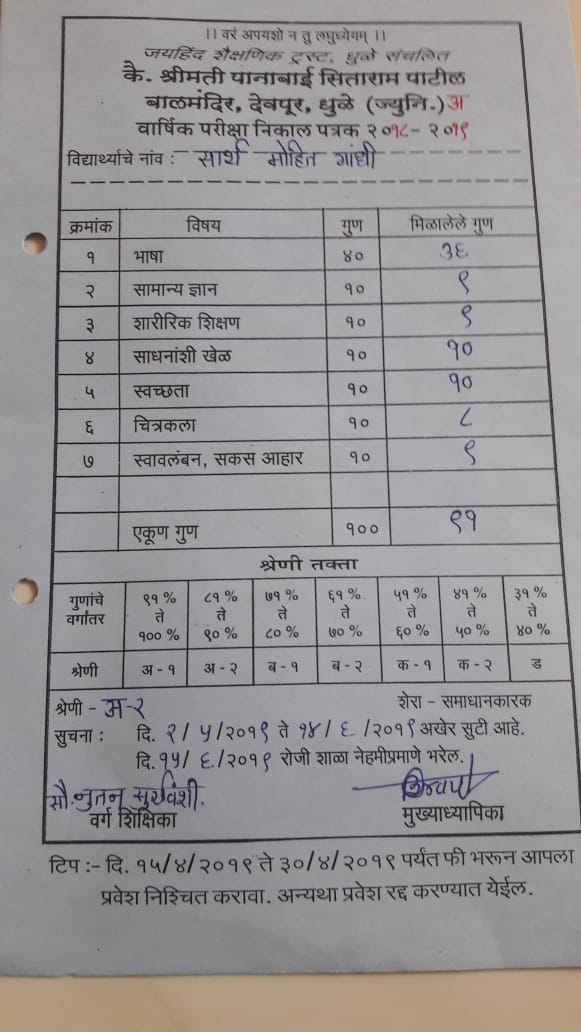 ।। वरं अपयशो न तु लघुध्येयम् ।।
जयहिंद शैक्षणिक ट्रस्ट, धुळे संचलित
कै. श्रीमती पानाबाई सिताराम पाटील
बालमंदिर, देवपूर, धुळे (ज्युनि.) अ
वार्षिक परीक्षा निकाल पत्रक २०१८ - २०१९
विद्यार्थ्याचे नांव : सार्थ मोहित गांधी
क्रमांक विषय गुण मिळालेले गुण
१ भाषा ४० ३६
२ सामान्य ज्ञान १० ९
३ शारीरिक शिक्षण १० ९
४ साधनांशी खेळ १० १०
५ स्वच्छता १० १०
६ चित्रकला १० ८
७ स्वावलंबन, सकस आहार १० ९
एकूण गुण १०० ९१
श्रेणी तक्ता
गुणांचे वर्गांतर ९१ % ते १०० % ८१ % ते ९० % ७१ % ते ८० % ६१ % ते ७० % ५१ % ते ६० % ४१ % ते ५० % ३१ % ते ४० %
श्रेणी अ - १ अ - २ ब - १ ब - २ क - १ क - २ ड
श्रेणी - अ-२ शेरा - समाधानकारक
सुचना : दि. २/ ५/२०१९ ते १४/ ६ /२०१९ अखेर सुटी आहे.
दि.१५/ ६/२०१९ रोजी शाळा नेहमीप्रमाणे भरेल.
सौ. नुतन सुर्यवंशी.
वर्ग शिक्षिका मुख्याध्यापिका
टिप :- दि. १५/४/२०१९ ते ३०/४/२०१९ पर्यंत फी भरून आपला
प्रवेश निश्चित करावा. अन्यथा प्रवेश रद्द करण्यात येईल.